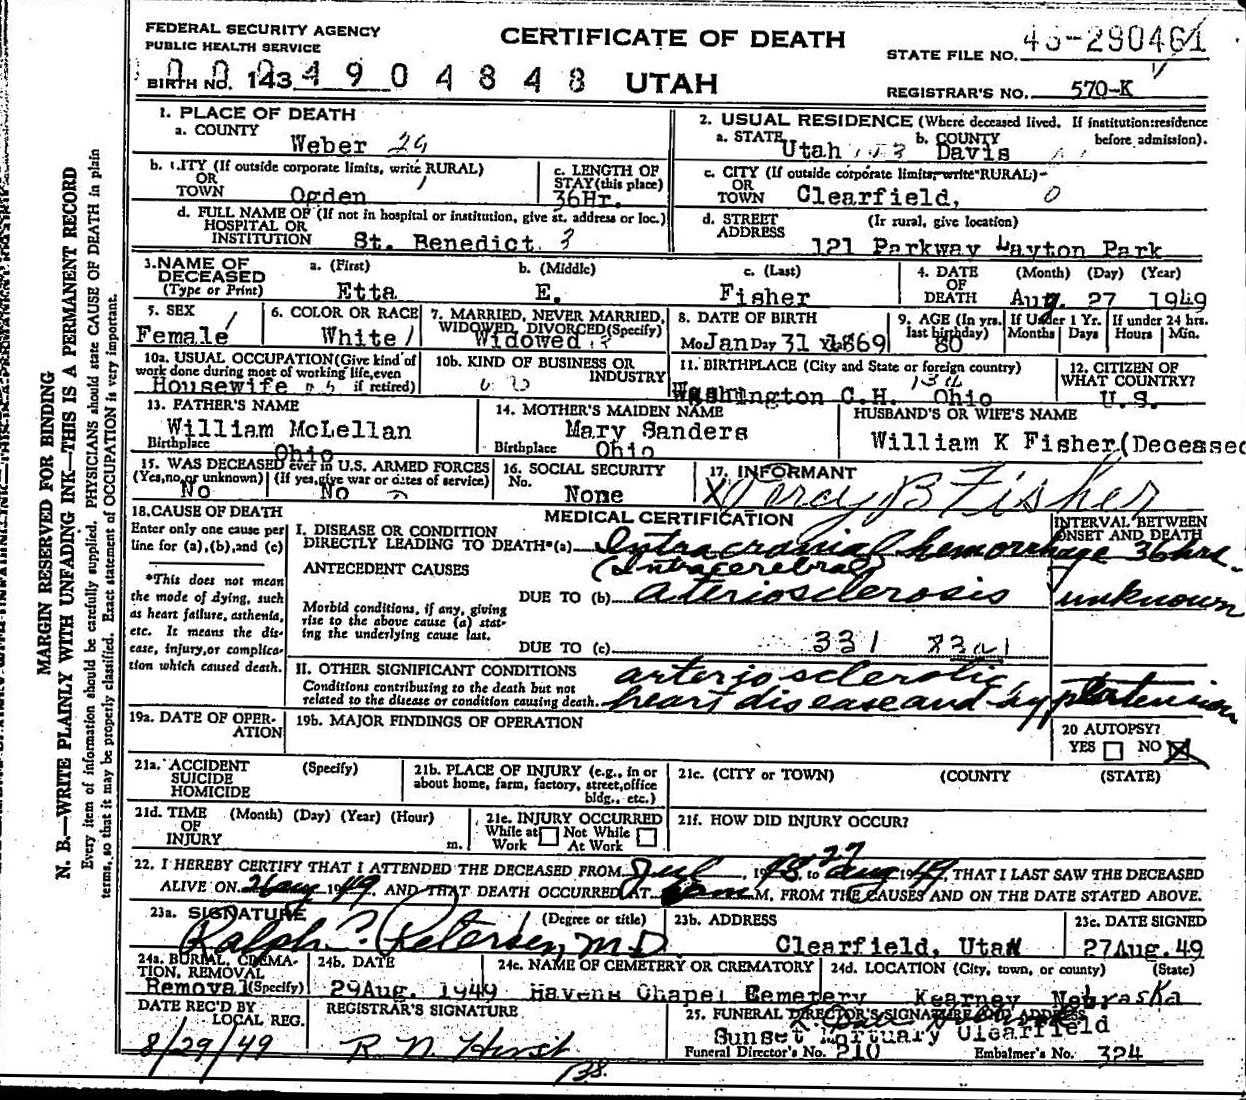 FEDERAL SECURITY AGENCY
PUBLIC HEALTH SERVICE
CERTIFICATE OF DEATH
STATE FILE NO.
BIRTH NO. 143 4904848 UTAH
REGISTRAR'S NO. 570-K
1. PLACE OF DEATH
a. COUNTY Weber 29
2. USUAL RESIDENCE (Where deceased lived. If institution:residence before admission).
a. STATE Utah b. COUNTY Davis
b. CITY (If outside corporate limits, write RURAL) OR TOWN Ogden
c. LENGTH OF STAY(this place) 36Hr.
c. CITY (If outside corporate limits, write RURAL) OR TOWN Clearfield,
d. FULL NAME OF (If not in hospital or institution, give st. address or loc.) HOSPITAL OR INSTITUTION St. Benedict
d. STREET ADDRESS (If rural, give location) 121 Parkway Layton Park
3. NAME OF DECEASED (Type or Print)
a. (First) Etta
b. (Middle) E.
c. (Last) Fisher
4. DATE OF DEATH (Month) (Day) (Year) Aug. 27 1949
5. SEX Female
6. COLOR OR RACE White
7. MARRIED, NEVER MARRIED, WIDOWED, DIVORCED(Specify) Widowed
8. DATE OF BIRTH Mo Jan Day 31 1869
9. AGE (In yrs. last birthday) 80
If Under 1 Yr. Months Days
If under 24 hrs. Hours Min.
10a. USUAL OCCUPATION(Give kind of work done during most of working life,even if retired) Housewife
10b. KIND OF BUSINESS OR INDUSTRY
11. BIRTHPLACE (City and State or foreign country) Washington C.H. Ohio
12. CITIZEN OF WHAT COUNTRY? U.S.
13. FATHER'S NAME William McLellan
Birthplace Ohio
14. MOTHER'S MAIDEN NAME Mary Sanders
Birthplace Ohio
HUSBAND'S OR WIFE'S NAME
William K Fisher(Deceased
15. WAS DECEASED ever in U.S. ARMED FORCES
(Yes,no,or unknown) No
(If yes,give war or dates of service) No
16. SOCIAL SECURITY No. None
17. INFORMANT
X B Fisher
18. CAUSE OF DEATH
Enter only one cause per line for (a),(b),and (c)
*This does not mean the mode of dying, such as heart failure, asthenia, etc. It means the disease, injury,or complication which caused death.
MEDICAL CERTIFICATION
INTERVAL BETWEEN ONSET AND DEATH
I. DISEASE OR CONDITION
DIRECTLY LEADING TO DEATH*(a) Intracranial hemorrhage 36hrs.
(Intracerebral)
ANTECEDENT CAUSES
DUE TO (b) arteriosclerosis unknown
Morbid conditions, if any, giving rise to the above cause (a) stating the underlying cause last.
DUE TO (c) 331
II. OTHER SIGNIFICANT CONDITIONS
Conditions contributing to the death but not related to the disease or condition causing death.
arteriosclerotic
heart disease and hypertension
19a. DATE OF OPERATION
19b. MAJOR FINDINGS OF OPERATION
20 AUTOPSY?
YES NO X
21a. ACCIDENT SUICIDE HOMICIDE (Specify)
21b. PLACE OF INJURY (e.g., in or about home, farm, factory, street,office bldg., etc.)
21c. (CITY or TOWN) (COUNTY) (STATE)
21d. TIME OF INJURY (Month) (Day) (Year) (Hour) m.
21e. INJURY OCCURRED
While at Work Not While At Work
21f. HOW DID INJURY OCCUR?
22. I HEREBY CERTIFY THAT I ATTENDED THE DECEASED FROM 19 to 27 Aug 1949, THAT I LAST SAW THE DECEASED
ALIVE ON 1949. AND THAT DEATH OCCURRED AT M, FROM THE CAUSES AND ON THE DATE STATED ABOVE.
23a. SIGNATURE (Degree or title)
Ralph C. Petersen, M.D.
23b. ADDRESS Clearfield, Utah
23c. DATE SIGNED 27Aug.49
24a. BURIAL, CREMATION, REMOVAL (Specify) Removal
24b. DATE 29Aug. 1949
24c. NAME OF CEMETERY OR CREMATORY Havens Chapel Cemetery
24d. LOCATION (City, town, or county) (State) Kearney Nebraska
DATE REC'D BY LOCAL REG. 8/29/49
REGISTRAR'S SIGNATURE
R N Hirst
138.
25. FUNERAL DIRECTOR'S SIGNATURE AND ADDRESS
Sunset Mortuary Clearfield
Funeral Director's No. 210 Embalmer's No. 324
MARGIN RESERVED FOR BINDING
N. B.—WRITE PLAINLY WITH UNFADING INK—THIS IS A PERMANENT RECORD
Every item of information should be carefully supplied. PHYSICIANS should state CAUSE OF DEATH in plain
terms, so that it may be properly classified. Exact statement of OCCUPATION is very important.